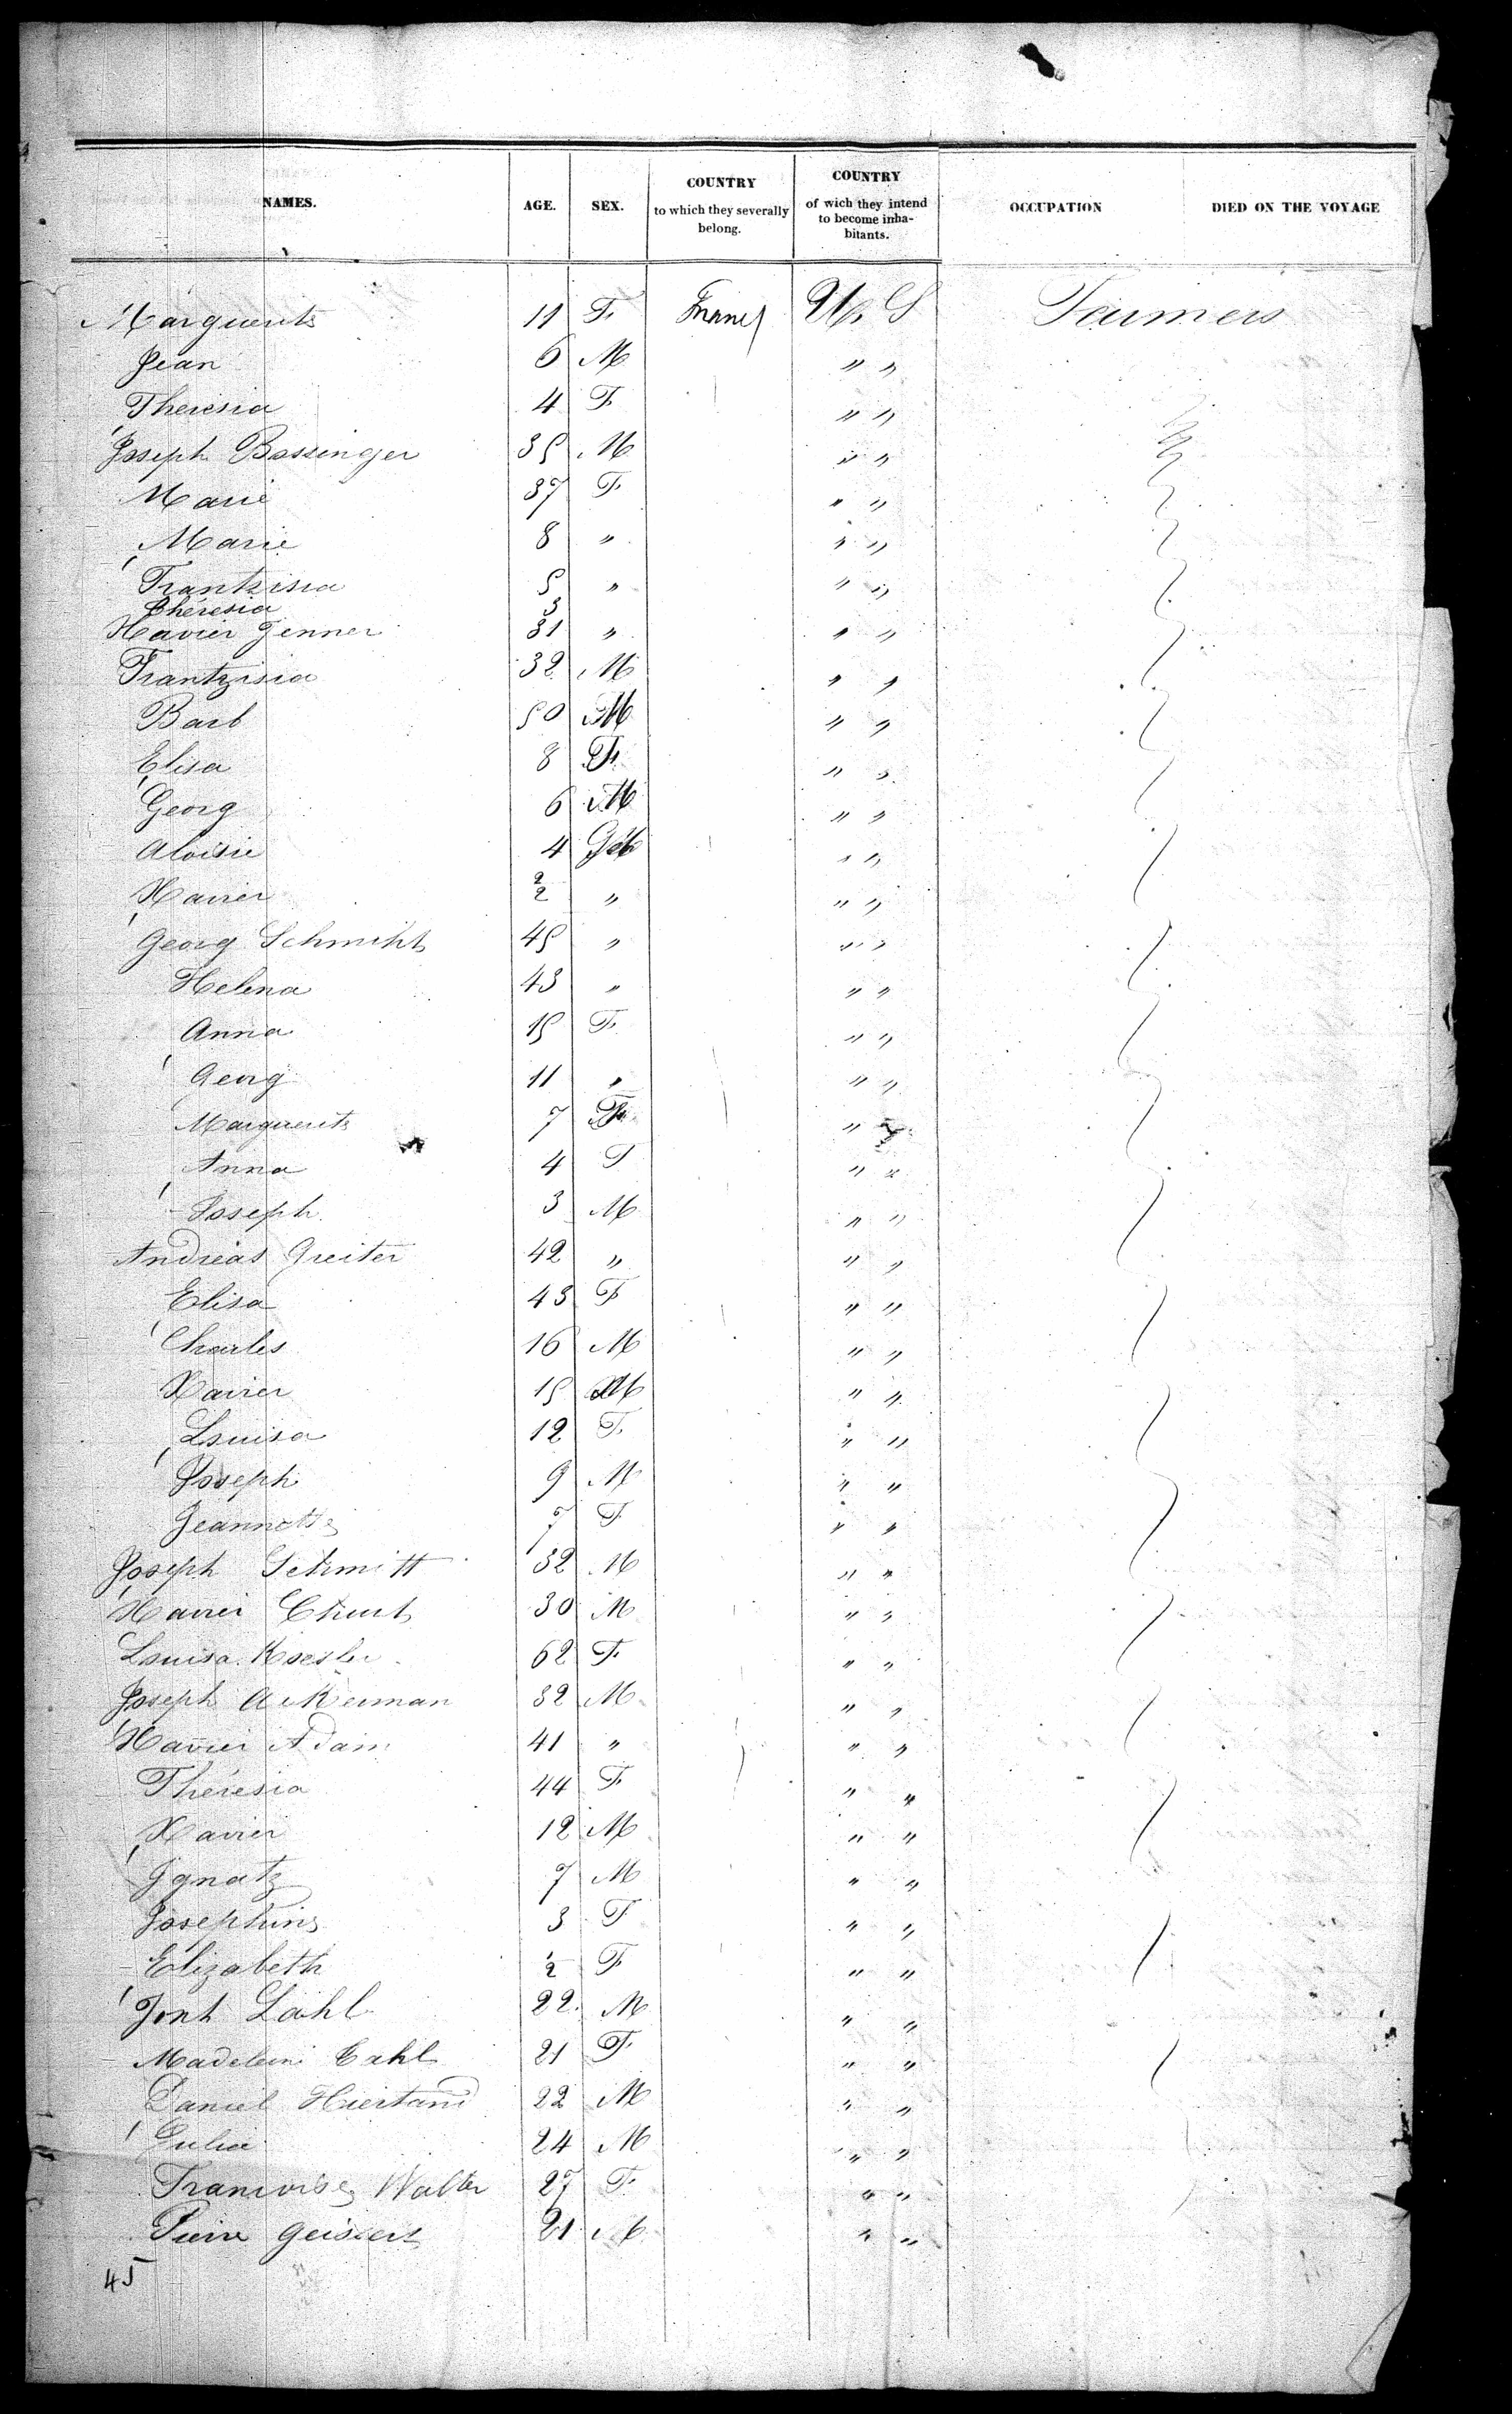 NAMES. AGE. SEX. COUNTRY to which they severally belong. COUNTRY of wich they intend to become inhabitants. OCCUPATION DIED ON THE VOYAGE
Marguerite 11 F. France U. S Farmers
Jean 6 M " "
Theresia 4 F " "
Joseph Bossinger 35 M " "
Marie 37 F " "
Marie 8 " " "
Frantzisia 5 " " "
Théresia 3
Xavier Jenner 31 " " "
Frantzisia 32 M " "
Barb 50 M " "
Elisa 8 F. " "
Georg 6 M " "
Aloisie 4 " "
Xavier 2 " " "
Georg Schmiht 45 " " "
Helena 43 " " "
Anna 15 F. " "
Georg 11 " " "
Marguerite 7 F " "
Anna 4 F " "
Joseph 3 M " "
Andreas Greiter 42 " " "
Elisa 43 F " "
Charles 16 M " "
Xavier 15 M " "
Louisa 12 F. " "
Joseph 9 M " "
Jeannette 7 F " "
Joseph Schmitt 32 M " "
Xavier 30 M " "
Louisa Koesler 62 F " "
Joseph Ackerman 32 M " "
Xavier Adam 41 " " "
Théresia 44 F " "
Xavier 12 M " "
Ignatz 7 M " "
Josephine 3 F " "
Elizabeth 1/2 F " "
Lahl 22 M " "
Madeleine 21 F " "
Daniel Hiestand 22 M " "
Julia 24 M " "
Francoise Walter 27 F. " "
Pierre Geissert 21 M " "
45